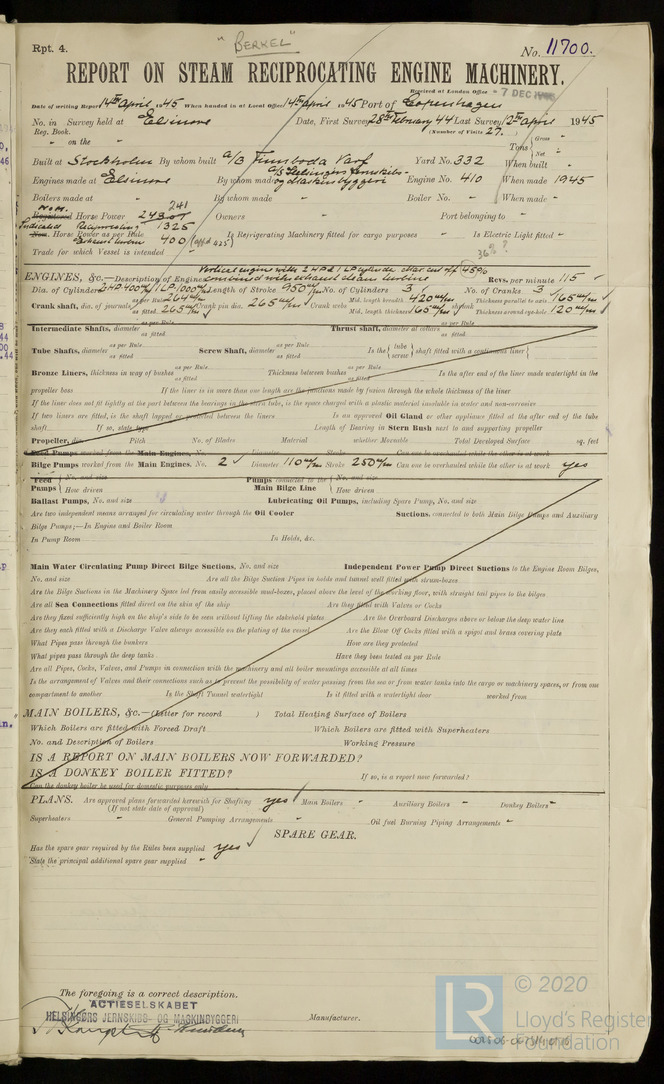 Rpt. 4.
"BERKEL"
No. 11700.
REPORT ON STEAM RECIPROCATING ENGINE MACHINERY.
Received at London Office -7 DEC 1945
Date of writing Report 14th April 1945 When handed in at Local Office 14th April 1945 Port of Copenhagen
No. in Survey held at Elsinore Date, First Survey 28th February 44 Last Survey 12th April 1945
Reg. Book. (Number of Visits 27.)
" on the " Tons { Gross " Net "
Built at Stockholm By whom built A/B Finnboda Varf Yard No. 332 When built "
Engines made at Elsinore By whom made A/S Helsingørs Jernskibs- og Maskinbyggeri Engine No. 410 When made 1945
Boilers made at " By whom made " Boiler No. " When made "
Registered Horse Power 241 Owners " Port belonging to "
Nom. Horse Power as per Rule Is Refrigerating Machinery fitted for cargo purposes " Is Electric Light fitted "
Indicated Reciprocating 1325
Exhaust turbine 400
Trade for which Vessel is intended "
ENGINES, &c.—Description of Engines Vertical engine with 2 H.P. & 1 L.P. cylinder combined with exhaust steam turbine Revs. per minute 115
Dia. of Cylinders 2HP 400 m/m 1LP 1000 m/m Length of Stroke 950 m/m No. of Cylinders 3 No. of Cranks 3
Crank shaft, dia. of journals as per Rule 264 m/m as fitted 265 m/m Crank pin dia. 265 m/m Crank webs Mid. length breadth 420 m/m Mid. length thickness 165 m/m shrunk Thickness parallel to axis 165 m/m Thickness around eye-hole 120 m/m
Intermediate Shafts, diameter as per Rule as fitted Thrust shaft, diameter at collars as per Rule as fitted
Tube Shafts, diameter as per Rule as fitted Screw Shaft, diameter as per Rule as fitted Is the { tube screw } shaft fitted with a continuous liner {
Bronze Liners, thickness in way of bushes as per Rule as fitted Thickness between bushes as per Rule as fitted Is the after end of the liner made watertight in the
propeller boss If the liner is in more than one length are the junctions made by fusion through the whole thickness of the liner
If the liner does not fit tightly at the part between the bearings in the stern tube, is the space charged with a plastic material insoluble in water and non-corrosive
If two liners are fitted, is the shaft lapped or protected between the liners Is an approved Oil Gland or other appliance fitted at the after end of the tube
shaft If so, state type Length of Bearing in Stern Bush next to and supporting propeller
Propeller, dia. Pitch No. of Blades Material whether Moveable Total Developed Surface sq. feet
Feed Pumps worked from the Main Engines, No. Diameter Stroke Can one be overhauled while the other is at work
Bilge Pumps worked from the Main Engines, No. 2 Diameter 110 m/m Stroke 250 m/m Can one be overhauled while the other is at work yes
Feed Pumps { No. and size How driven Pumps connected to the Main Bilge Line { No. and size How driven
Ballast Pumps, No. and size Lubricating Oil Pumps, including Spare Pump, No. and size
Are two independent means arranged for circulating water through the Oil Cooler Suctions, connected to both Main Bilge Pumps and Auxiliary
Bilge Pumps;—In Engine and Boiler Room
In Pump Room In Holds, &c.
Main Water Circulating Pump Direct Bilge Suctions, No. and size Independent Power Pump Direct Suctions to the Engine Room Bilges,
No. and size Are all the Bilge Suction Pipes in holds and tunnel well fitted with strum-boxes
Are the Bilge Suctions in the Machinery Space led from easily accessible mud-boxes, placed above the level of the working floor, with straight tail pipes to the bilges
Are all Sea Connections fitted direct on the skin of the ship Are they fitted with Valves or Cocks
Are they fixed sufficiently high on the ship's side to be seen without lifting the stokehold plates Are the Overboard Discharges above or below the deep water line
Are they each fitted with a Discharge Valve always accessible on the plating of the vessel Are the Blow Off Cocks fitted with a spigot and brass covering plate
What Pipes pass through the bunkers How are they protected
What pipes pass through the deep tanks Have they been tested as per Rule
Are all Pipes, Cocks, Valves, and Pumps in connection with the machinery and all boiler mountings accessible at all times
Is the arrangement of Valves and their connections such as to prevent the possibility of water passing from the sea or from water tanks into the cargo or machinery spaces, or from one
compartment to another Is the Shaft Tunnel watertight Is it fitted with a watertight door worked from
MAIN BOILERS, &c.—(Letter for record ) Total Heating Surface of Boilers
Which Boilers are fitted with Forced Draft Which Boilers are fitted with Superheaters
No. and Description of Boilers Working Pressure
IS A REPORT ON MAIN BOILERS NOW FORWARDED?
IS A DONKEY BOILER FITTED? If so, is a report now forwarded?
Can the donkey boiler be used for domestic purposes only
PLANS. Are approved plans forwarded herewith for Shafting yes Main Boilers " Auxiliary Boilers " Donkey Boilers "
(If not state date of approval)
Superheaters " General Pumping Arrangements " Oil fuel Burning Piping Arrangements "
SPARE GEAR.
Has the spare gear required by the Rules been supplied yes
State the principal additional spare gear supplied "
The foregoing is a correct description.
ACTIESELSKABET
HELSINGØRS JERNSKIBS- OG MASKINBYGGERI
Manufacturer.
LR © 2020
Lloyd's Register
Foundation